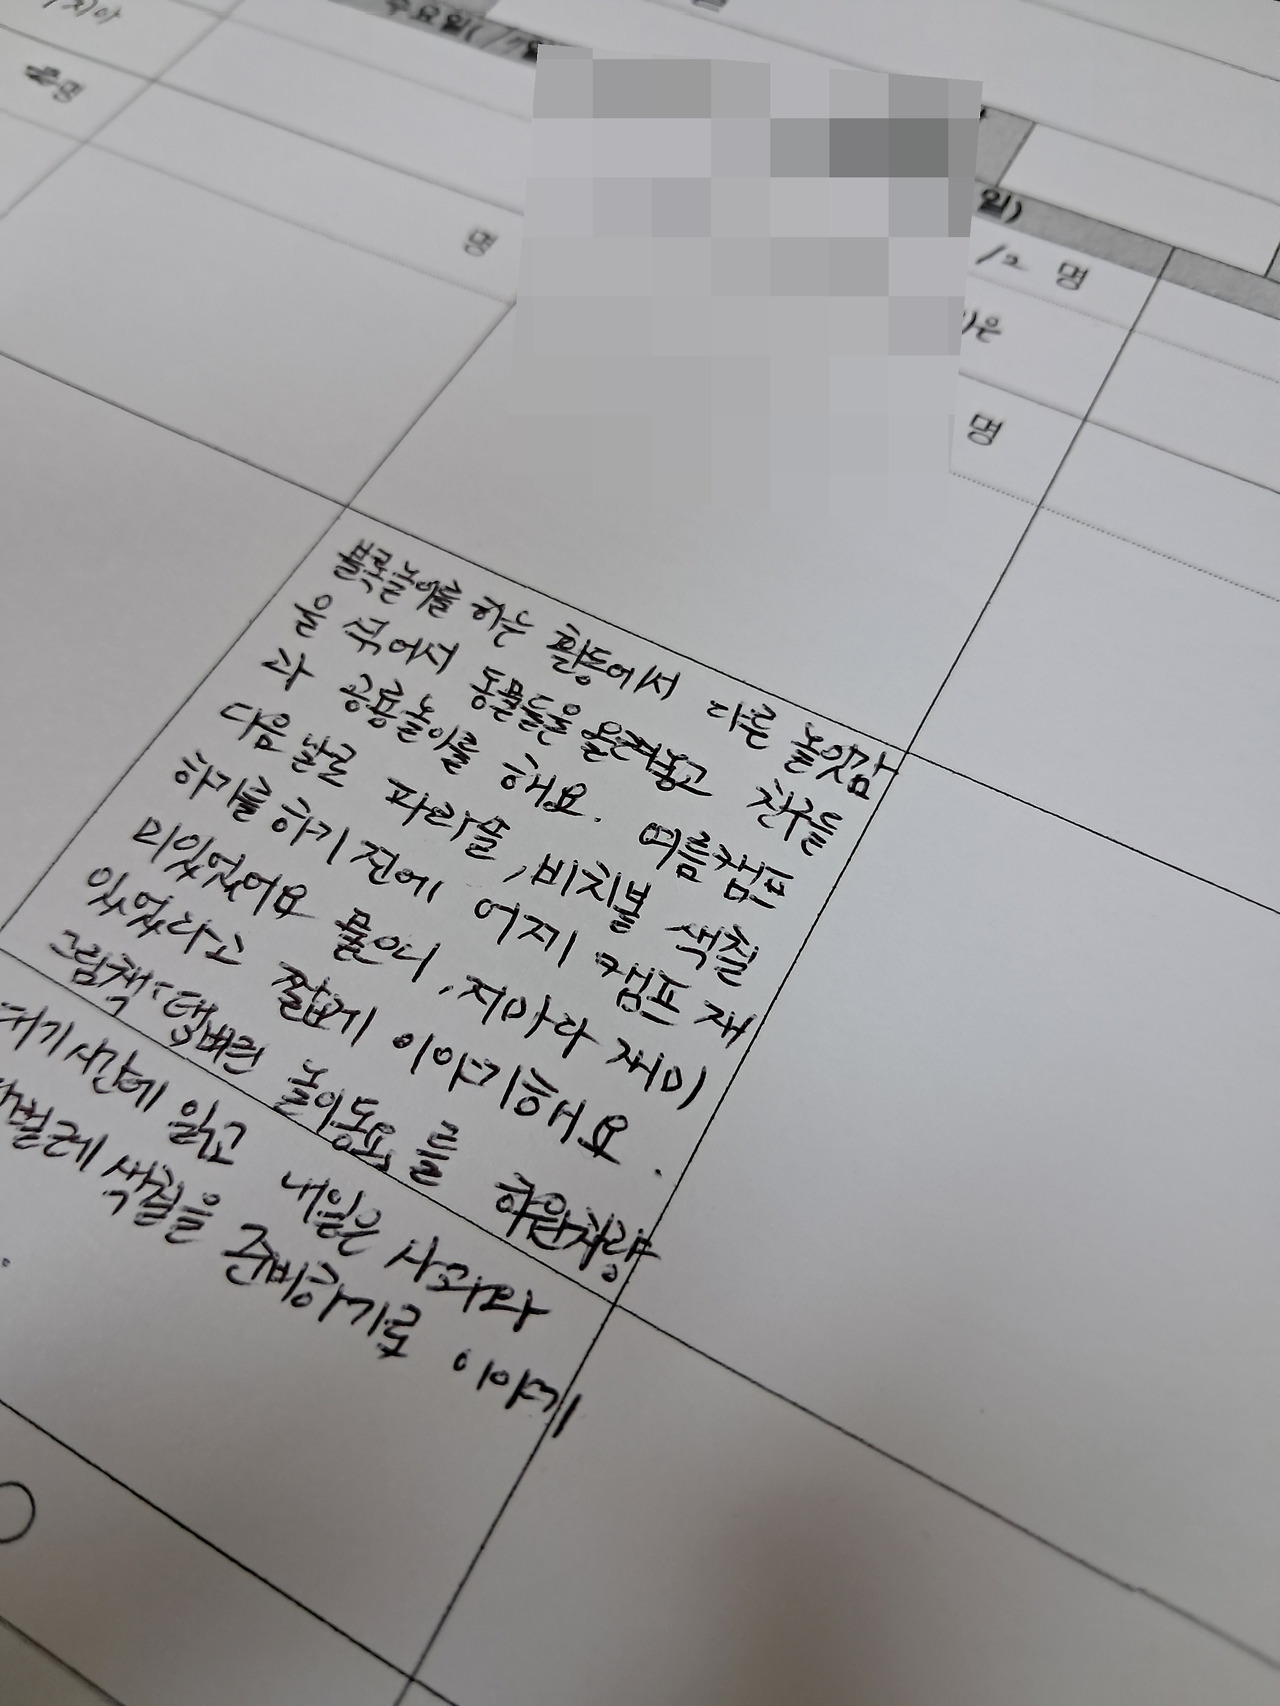 수요일(17일
일)
명
명
12 명
명
블록놀이를 하는 활동에서 다른 놀잇감
을 섞어서 동물들은 올려놓고 친구들
과 공룡놀이를 해요. 여름캠프
다음 날로 파라솔, 비치볼 색칠
하기를 하기 전에 어제 캠프 재
미있었어요 물으니, 저마다 재미
있었다고 짧게 이야기해요.
그림책, 탬버린 놀이동요를 하원차량
대기시간에 읽고 내일은 사과와
벌레 색칠을 준비하기로 이야기